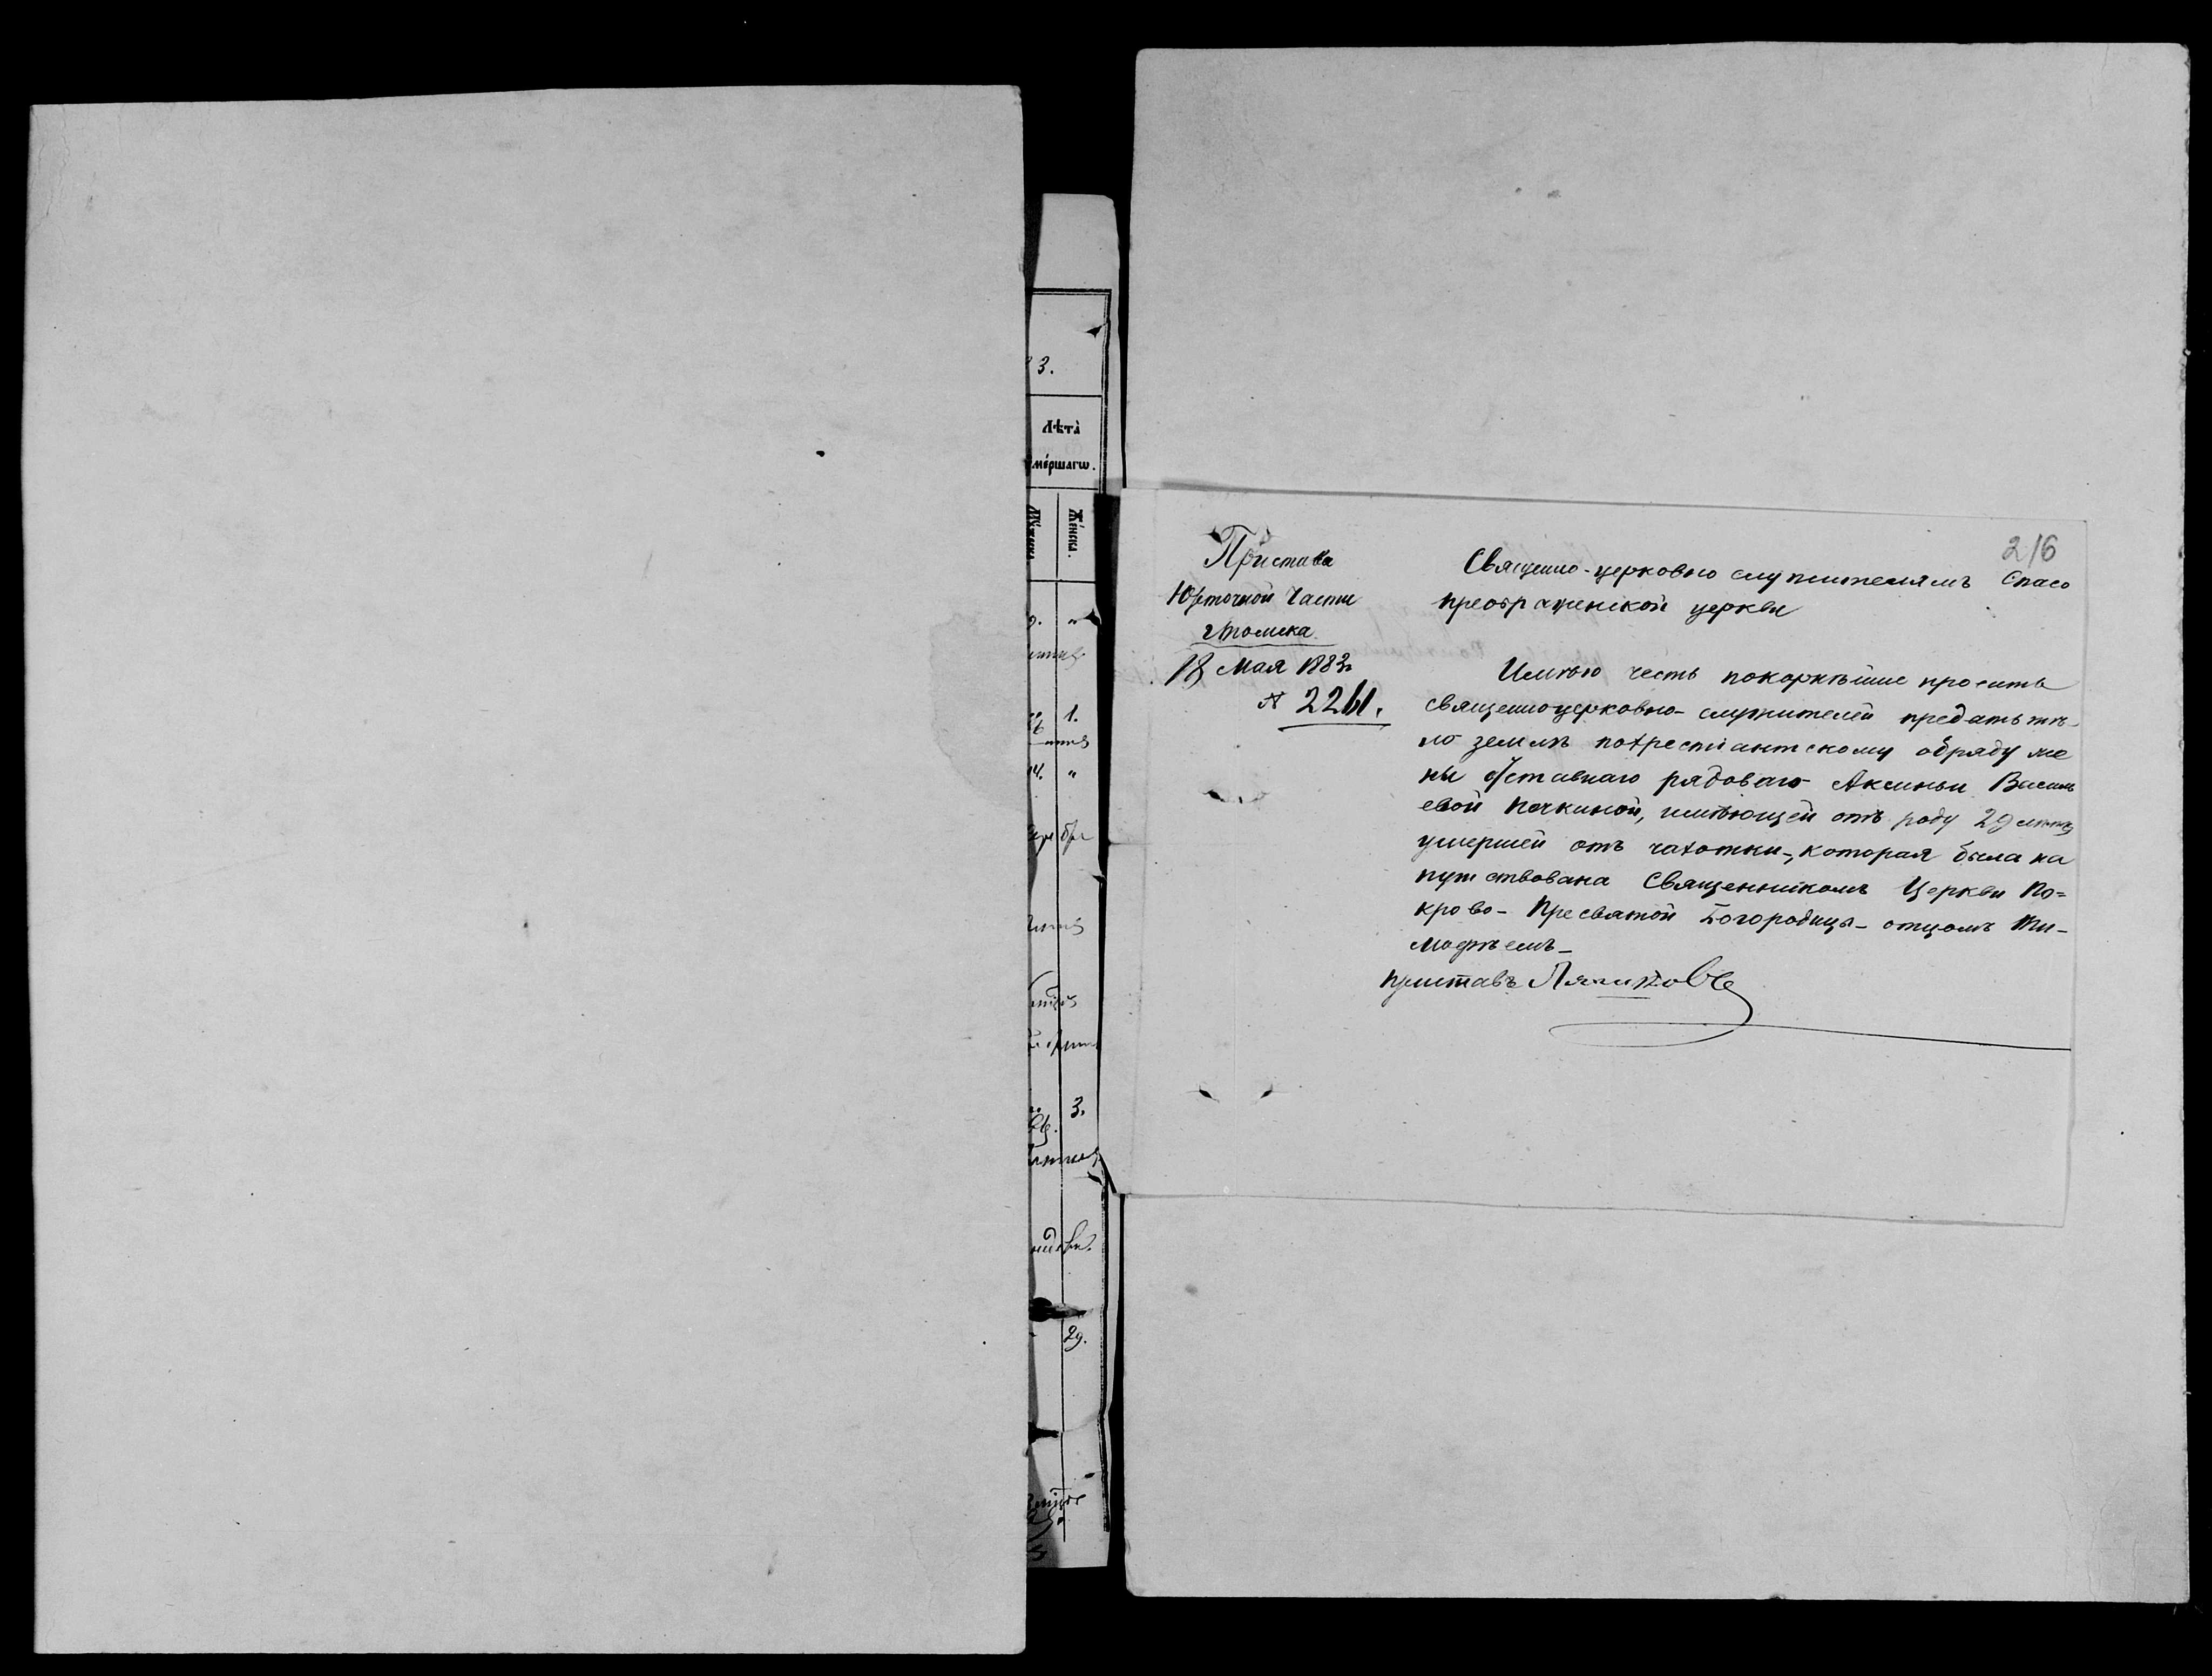 3.
Лѣта̀
мє́ршагѡ.
Же́нска.
1.
3.
29.
216
Пристава
Юрточной Части
г Томска
18 Мая 1883 г
№ 2261.
Священно-церковно служителямъ Спасо
преображенской церкви
Имѣю честь покорнѣйше просить
священоцерковно-служителей предать тѣ-
ло землѣ похрестіантскому обряду же
ны отставнаго рядоваго Аксиньи Василь
евой Почкиной, имѣющей отъ роду 29 лѣтъ
умершей отъ чахотки-, которая была на
путствована Священникомъ Церкви По=
крово-Пресвятой Богородицы-отцомъ Ти-
мофѣемъ_
Приставъ